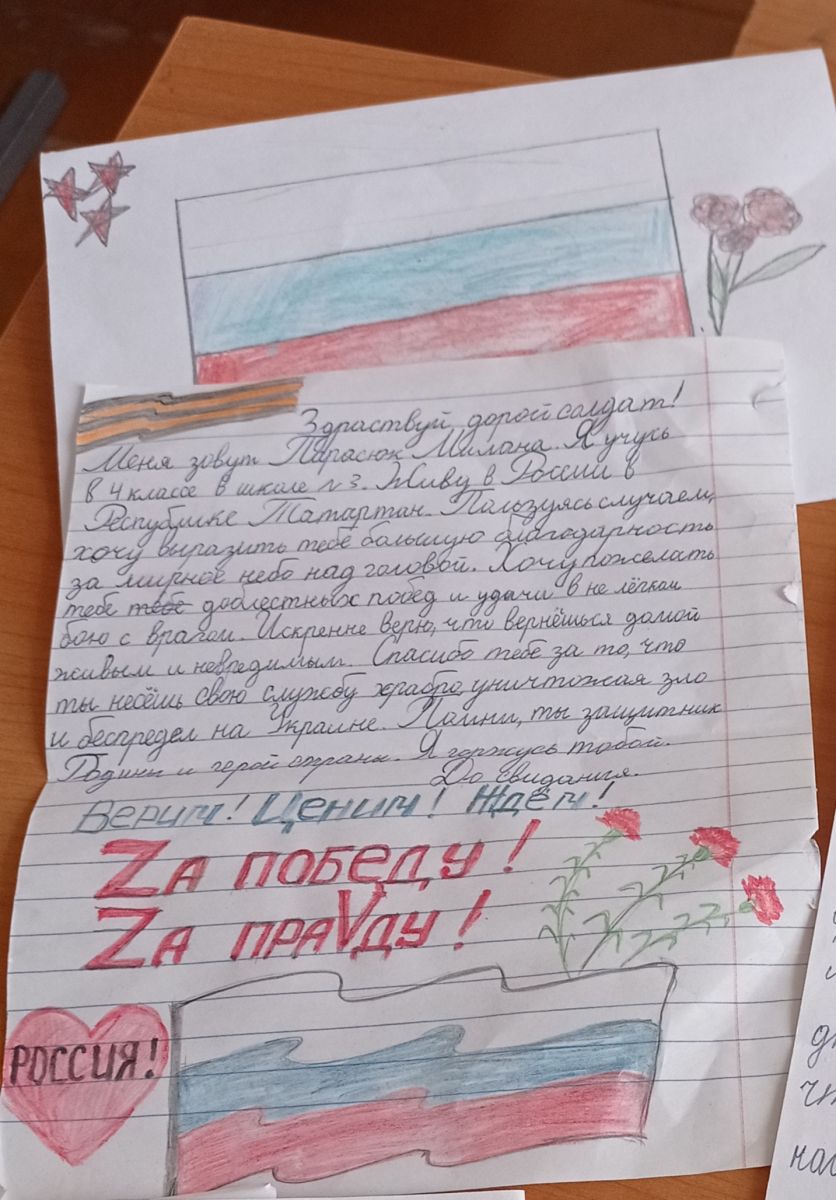 Здраствуй, дорой солдат!
Меня зовут Парасюк Милана. Я учусь
в 4 классе в школе №3. Живу в России в
Республике Татартан. Ползуясь случаем,
хочу выразить тебе большую благодарность
за мирное небо над головой. Хочу пожелать
тебе тебе доблестных побед и удачи в не лёгком
бою с врагом. Искренне верю, что вернёшься домой
живым и невредимым. Спасибо тебе за то, что
ты несёшь свою службу храбро, уничтожая зло
и беспредел на Украине. Помни, ты защитник
Родины и герой страны. Я горжусь тобой.
До свидания.
Верим! Ценим! Ждём!
Zа победу!
Zа праVду!
РОССИЯ!